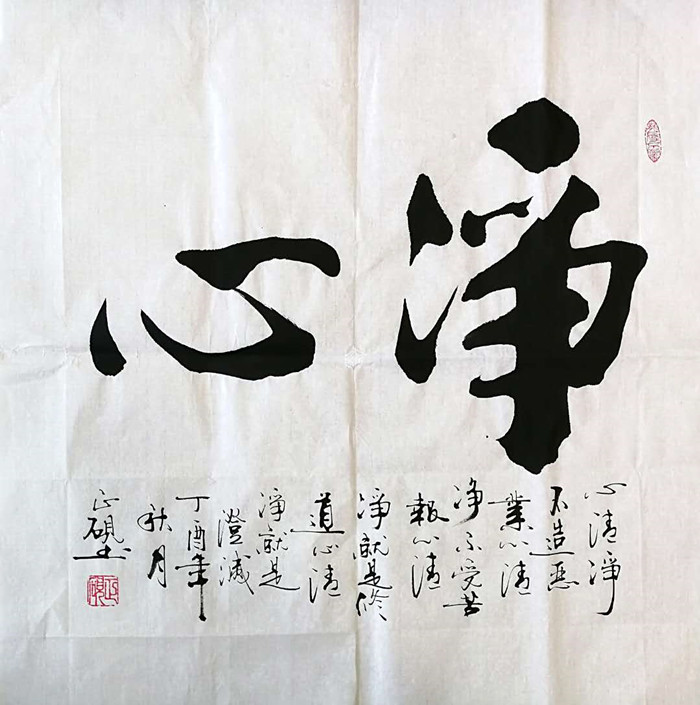 淨心
心清淨
不造惡
業心清
净不受苦
報心清
淨就是修
道心清
淨就是
澄滅
丁酉年
秋月
正硯书
正硯